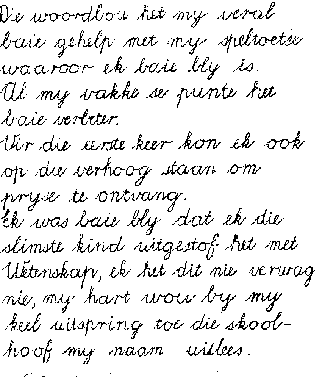 Die woordbou het my veral
baie gehelp met my speltoetse
waaroor ek baie bly is.
Al my vakke se punte het
baie verbeter.
Vir die eerste keer kon ek ook
op die verhoog staan om
pryse te ontvang.
Ek was baie bly dat ek die
slimste kind uitgestof het met
Wetenskap, ek het dit nie verwag
nie, my hart wou by my
keel uitspring toe die skool-
hoof my naam uitlees.